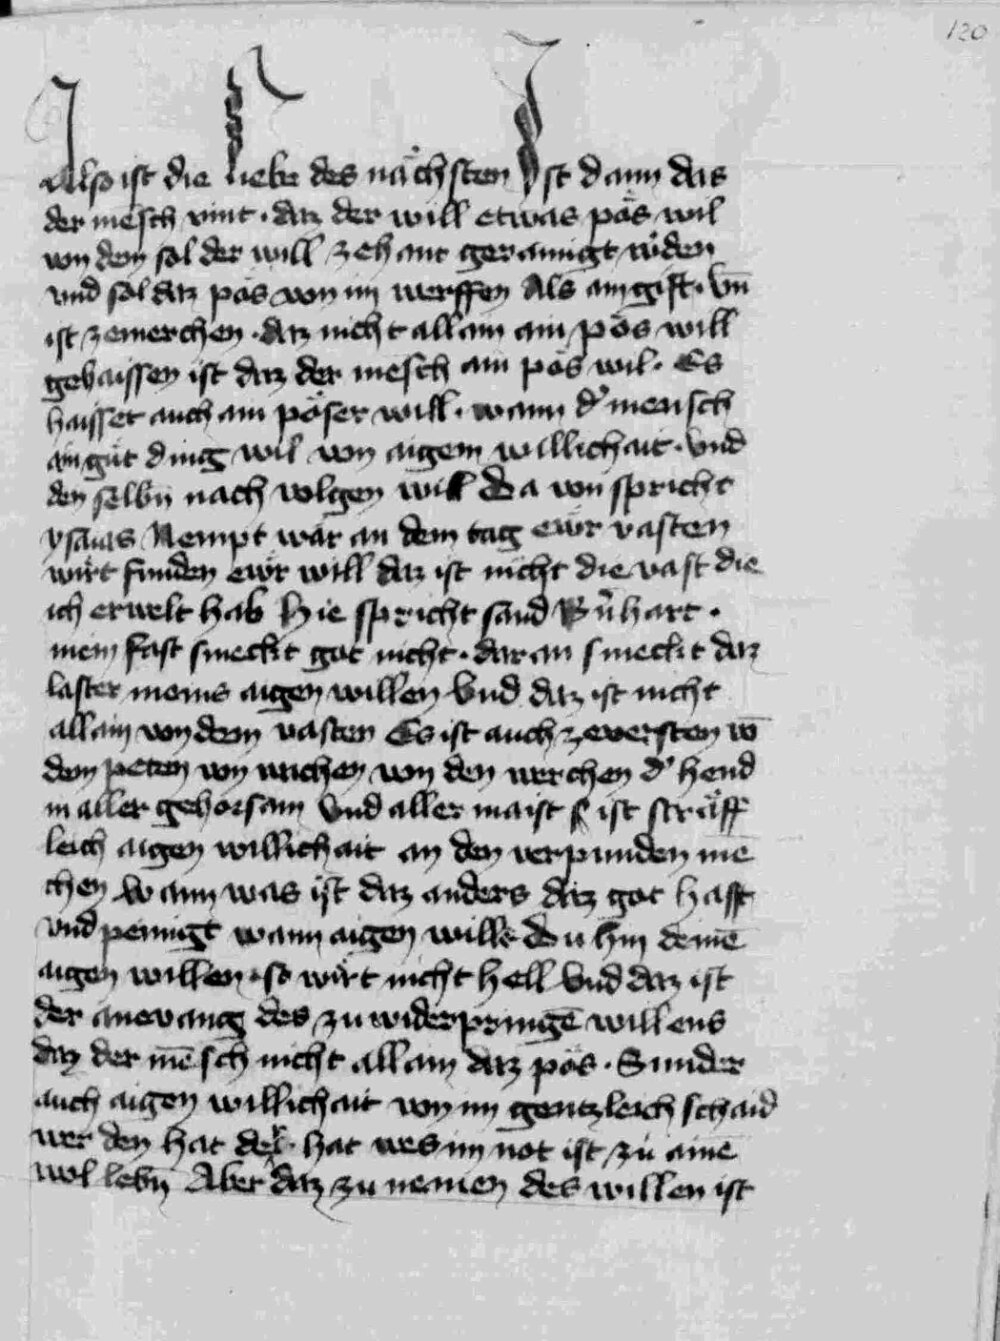 120
Also ist die liebe des nächsten Ist dann das
der mēsch vint · daz der will etwas pös wil
von dem sol der will zehant gerainigt w̄den
und sol daz pös von im werffen Als ain gift · vn̄
ist zemerchen · daz nicht allain ain pös will
gehaissen ist daz der mēsch ain pös wil · Es
haisset auch ain pöser will · wann d' mensch
ain güt ding wil von aigem willichait · vnd
den selbn̄ nach volgen will Da von spricht
ysaias Nempt war an dem tag ewr vasten
wirt funden ewr will daz ist nicht die vast die
ich erwelt hab Hie spricht sand Bn̄hart ·
mein fast smeckt got nicht · daran smeckt daz
laster meins aigen willen Vnd daz ist nicht
allain von dem vasten Es ist auch zeversten vō
dem peten von wachen von den werchen d' hend
in aller gehorsam Vnd aller maist ist sträff
leich aigen willichait an den verpunden mē
chen Wann was ist daz anders daz got hasst
vnd peinigt wann aigen wille Du hin deinē
aigen willen · so wirt nicht hell Vnd daz ist
der anevang des zu widerpringē willens
daz der mēsch nicht allain daz pös · Sunder
auch aigen willichait von im gentzleich schaid
wer den hat der · hat wes im not ist zu ainē
wol lebn̄ Aber daz zu nemen des willen ist